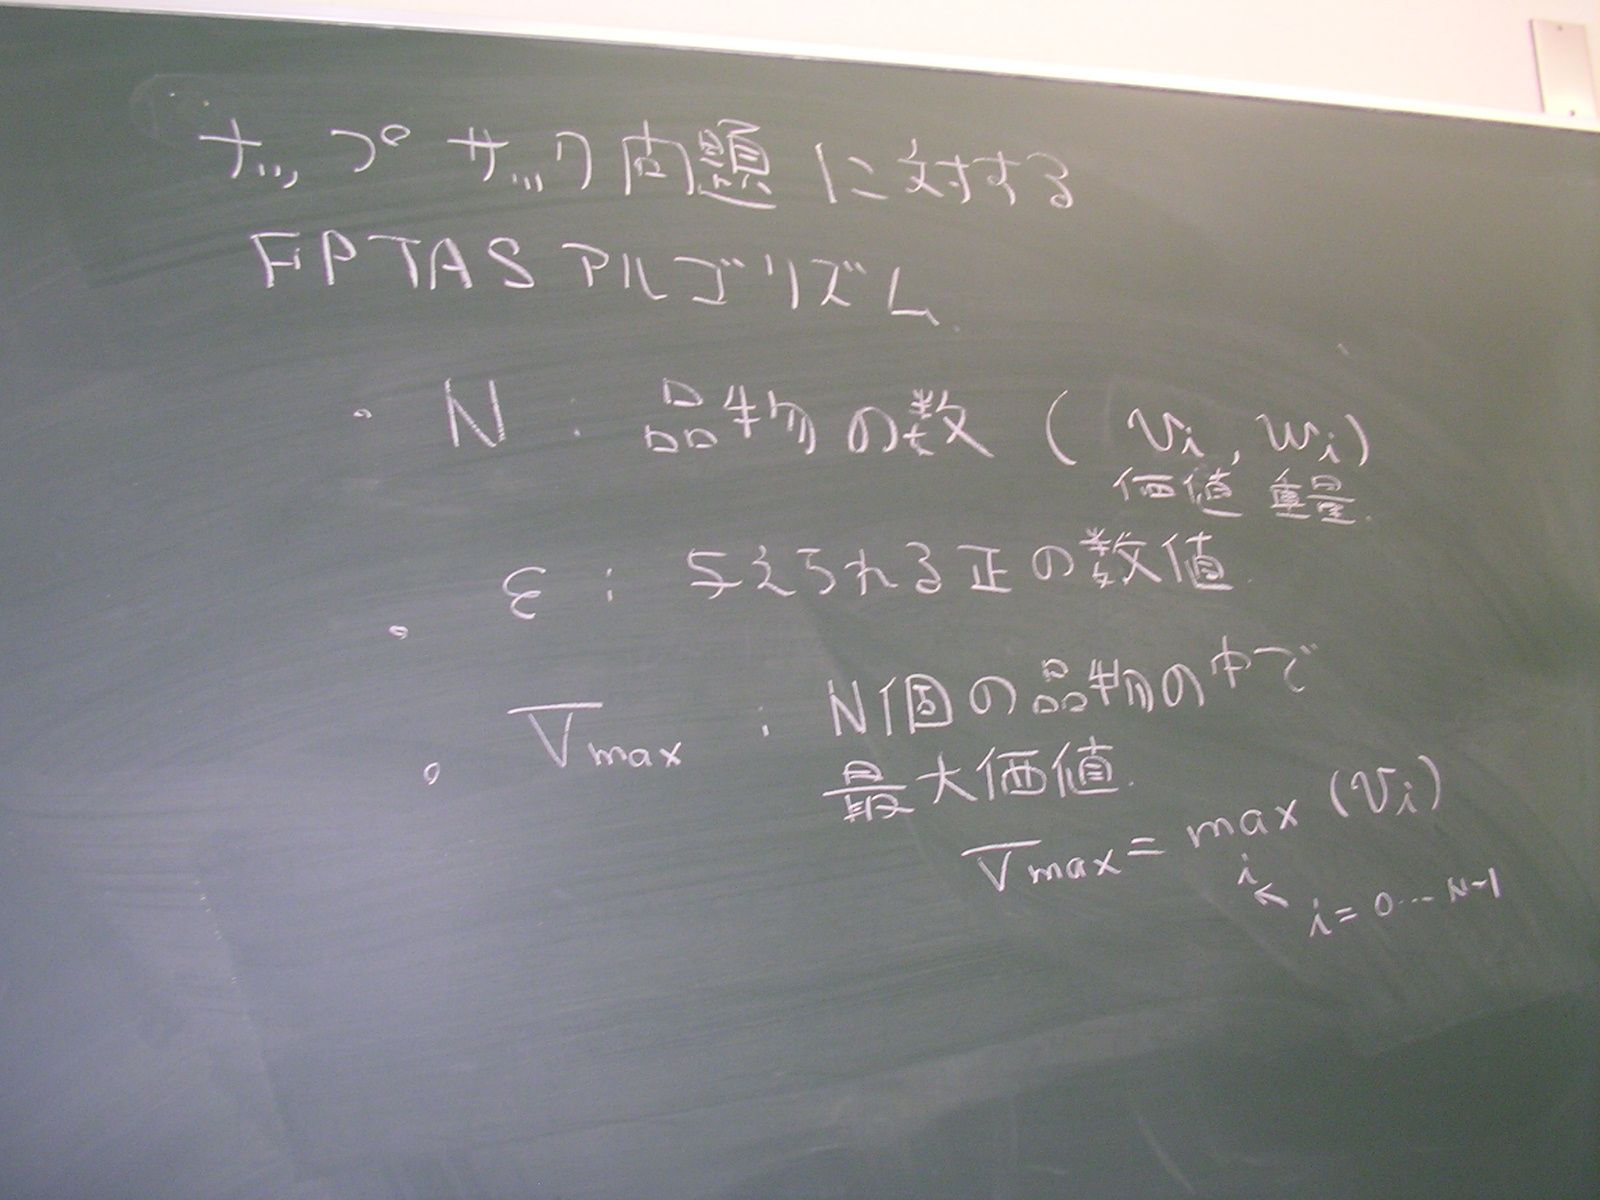 ナップサック問題に対する
FPTASアルゴリズム
・N : 品物の数 (vi, wi)
価値 重量
・ε : 与えられる正の数値
・Vmax : N個の品物の中で
最大価値.
Vmax = max (vi)
i
i=0…N-1